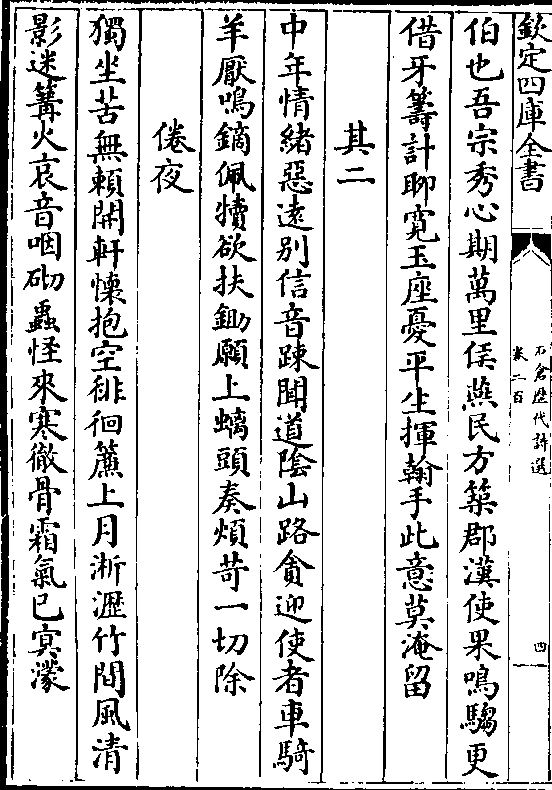 欽定四庫全書
石倉歴代詩選
卷二百
四
伯也吾宗秀心期萬里侯燕民方築郡漢使果鳴騶更
借牙籌計聊寛玉座憂平生揮翰手此意莫淹留
其二
中年情緒惡逺别信音踈聞道陰山路貪迎使者車騎
羊厭鳴鏑佩犢欲扶鋤願上螭頭奏煩苛一切除
倦夜
獨坐苦無賴開軒懷抱空徘徊簾上月淅瀝竹間風清
影迷篝火哀音咽砌蟲怪來寒徹骨霜氣已㝠濛